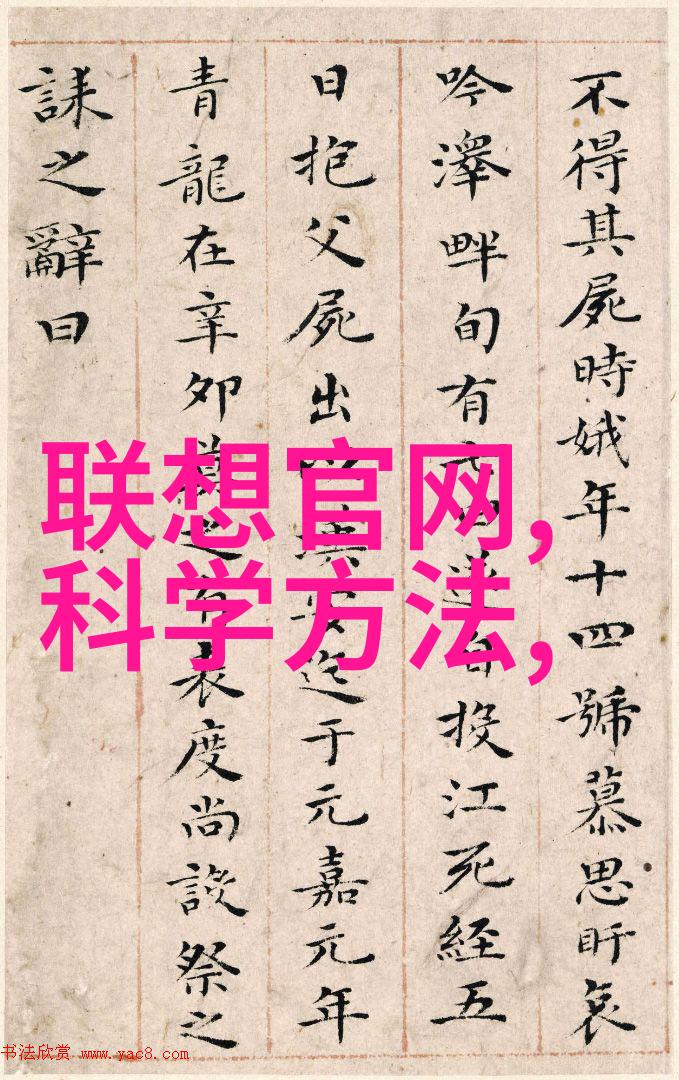 不得其屍時娥年十四號慕思盱哀
吟澤畔旬有七日遂自投江死經五
日抱父屍出以漢安迄于元嘉元年
青龍在辛卯莫之有表度尚設祭之
誄之辭曰
联想官网,
科学方法,
书法欣赏 www.yac8.com